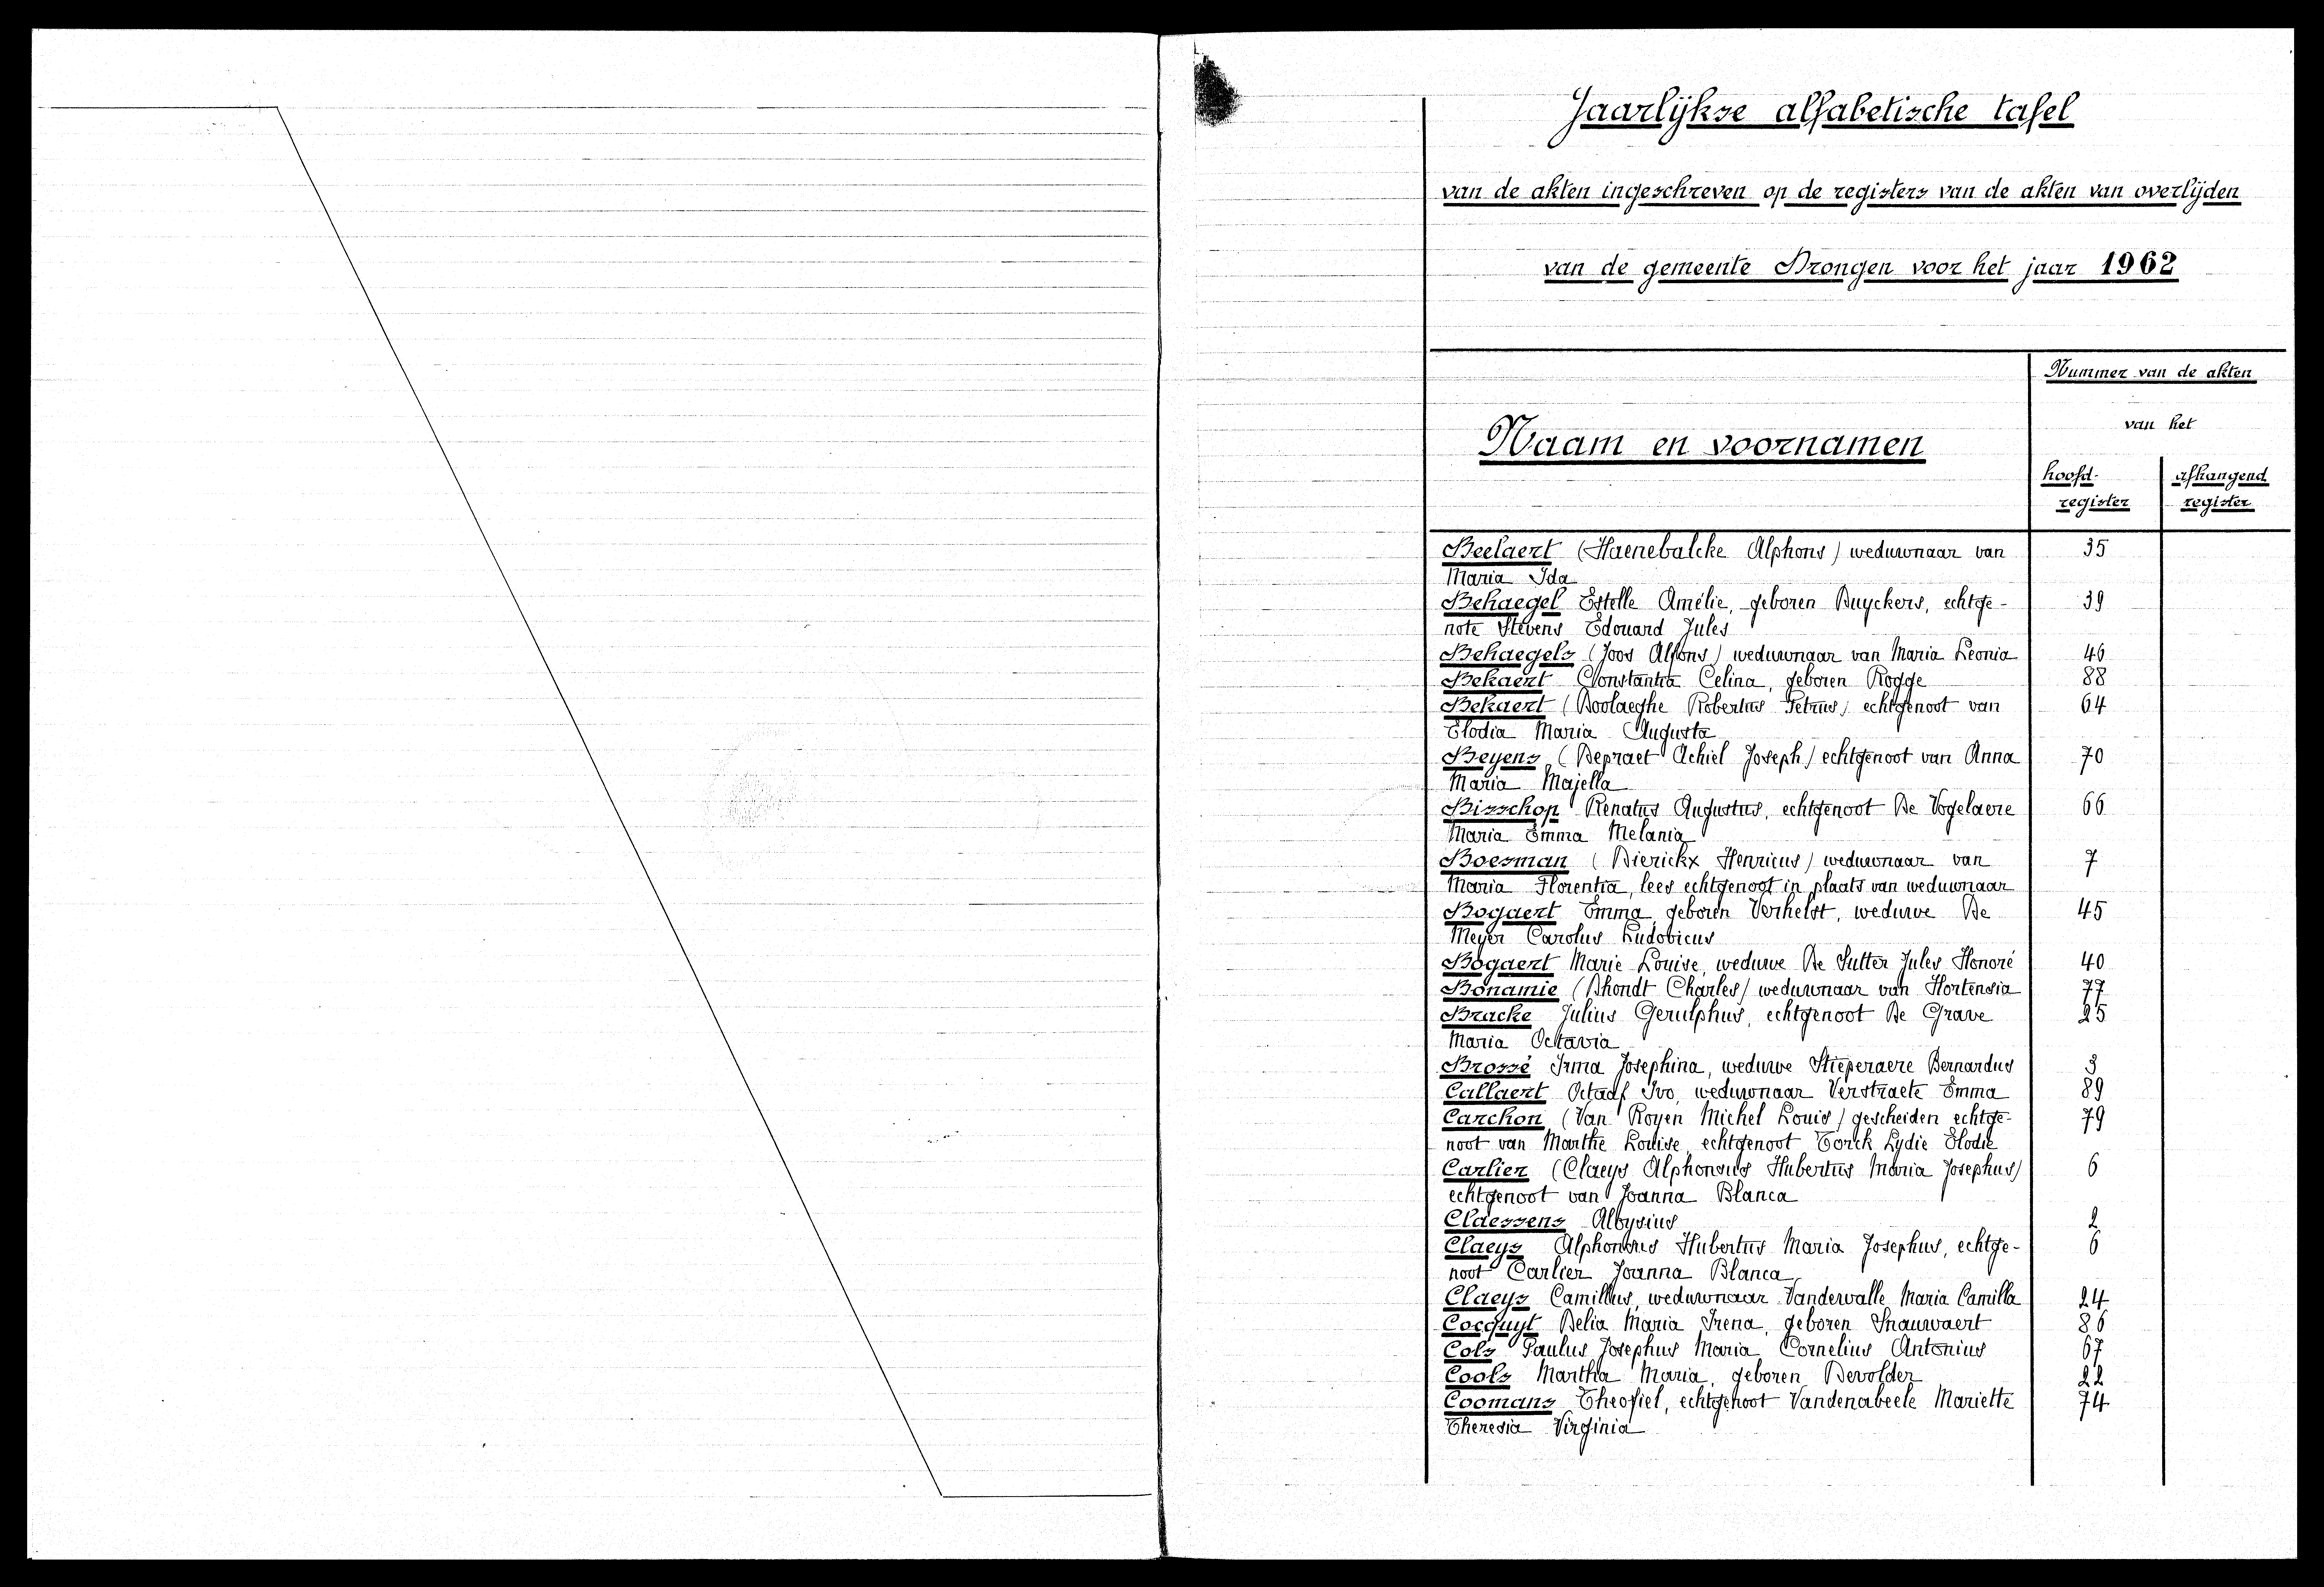 Jaarlijkse alfabetische tafel
van de akten ingeschreven op de registers van de akten van overlijden
van de gemeente Drongen voor het jaar 1962
Nummer van de akten
van het
Naam en voornamen
hoofd-
register
afhangend
register
Beelaert (Haenebalcke Alphons) weduwnaar van 35
Maria Ida
Behaegel Estelle Amélie, geboren Duyckers, echtge- 39
note Stevens Edouard Jules
Behaegels (Joos Alfons) weduwnaar van Maria Leonia 46
Bekaert Constantia Celina, geboren Rogge 88
Bekaert (Doolaeghe Robertus Petrus) echtgenoot van 64
Elodia Maria Augusta
Beyens (Depraet Achiel Joseph) echtgenoot van Anna 70
Maria Majella
Bisschop Renatus Augustus, echtgenoot De Vogelaere 66
Maria Emma Melania
Boesman (Dierickx Henricus) weduwnaar van 7
Maria Florentia, lees echtgenoot in plaats van weduwnaar
Bogaert Emma, geboren Verhelst, weduwe De 45
Meyer Carolus Ludovicus
Bogaert Marie Louise, weduwe De Sutter Jules Honoré 40
Bonamie (Dhondt Charles) weduwnaar van Hortensia 77
Bracke Julius Gerulphus, echtgenoot De Grave 25
Maria Octavia
Brossé Irma Josephina, weduwe Stieperaere Bernardus 3
Callaert Octaaf Ivo, weduwnaar Verstraete Emma 89
Carchon (Van Royen Michel Louis) gescheiden echtge- 79
noot van Marthe Louise, echtgenoot Torck Lydie Elodie
Carlier (Claeys Alphonsus Hubertus Maria Josephus) 6
echtgenoot van Joanna Blanca
Claessens Aloysius 2
Claeys Alphonsus Hubertus Maria Josephus, echtge- 6
noot Carlier Joanna Blanca
Claeys Camillus, weduwnaar Vandewalle Maria Camilla 24
Cocquyt Delia Maria Irena, geboren Snauwaert 86
Cols Paulus Josephus Maria Cornelius Antonius 67
Cools Martha Maria, geboren Devolder 22
Coomans Theofiel, echtgenoot Vandenabeele Mariette 74
Theresia Virginia